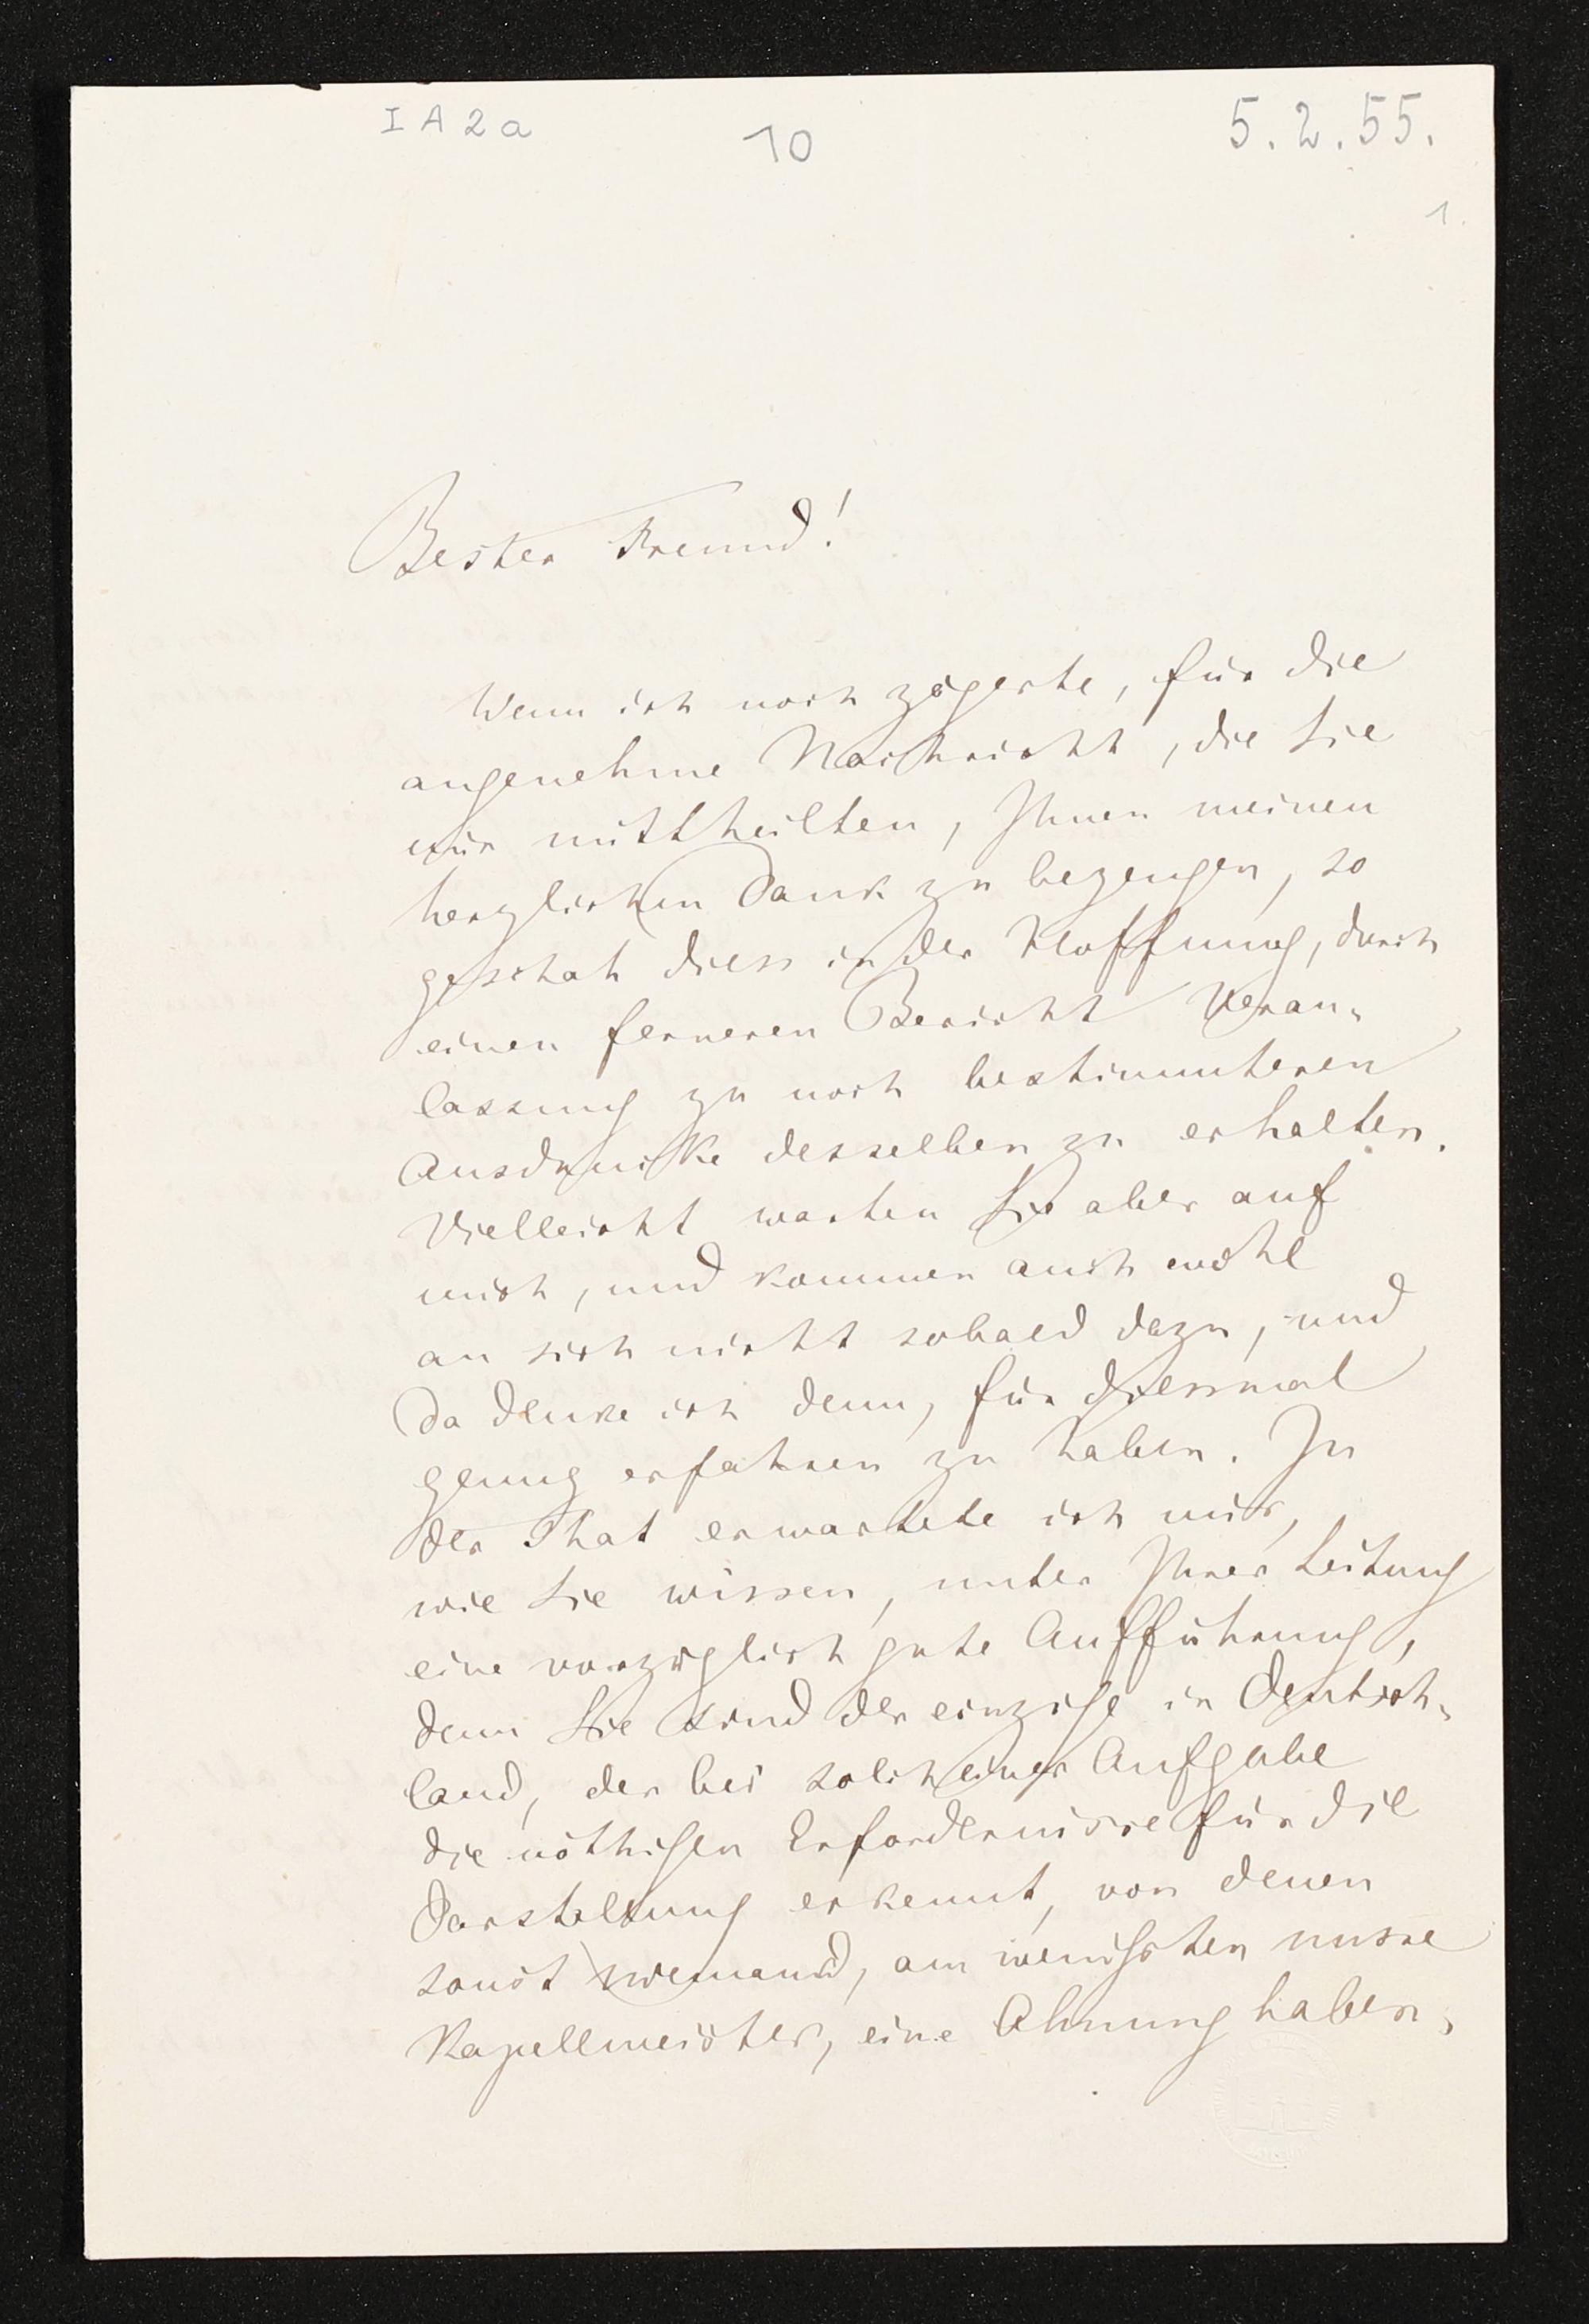 I A 2 a
10
5.2.55.
1.
Bester Freund!
Wenn ich noch zögerte, für die
angenehme Nachricht, die Sie
mir mittheilten, Ihnen meinen
herzlichen Dank zu bezeugen, so
geschah diess in der Hoffnung, durch
einen ferneren Bericht Veran-
lassung zu noch bestimmterem
Ausdrucke desselben zu erhalten.
Vielleicht warten Sie aber auf
mich, und kommen auch wohl
an sich nicht sobald dazu, und
da denke ich denn, für diessmal
genug erfahren zu haben. In
der That erwartete ich mir,
wie Sie wissen, unter Ihrer Leitung
eine vorzüglich gute Aufführung,
denn Sie sind der einzige in Deutsch-
land, der bei solch einer Aufgabe
die nöthigen Erfordernisse für die
Darstellung erkennt, von denen
sonst niemand, am wenigsten unsre
Kapellmeister, eine Ahnung haben;